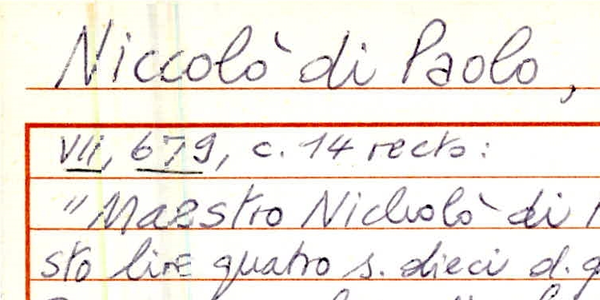 Niccolò di Paolo,
VII, 679, c. 14 recto:
"Maestro Nicholò di
sto lire quatro s. dieci d.